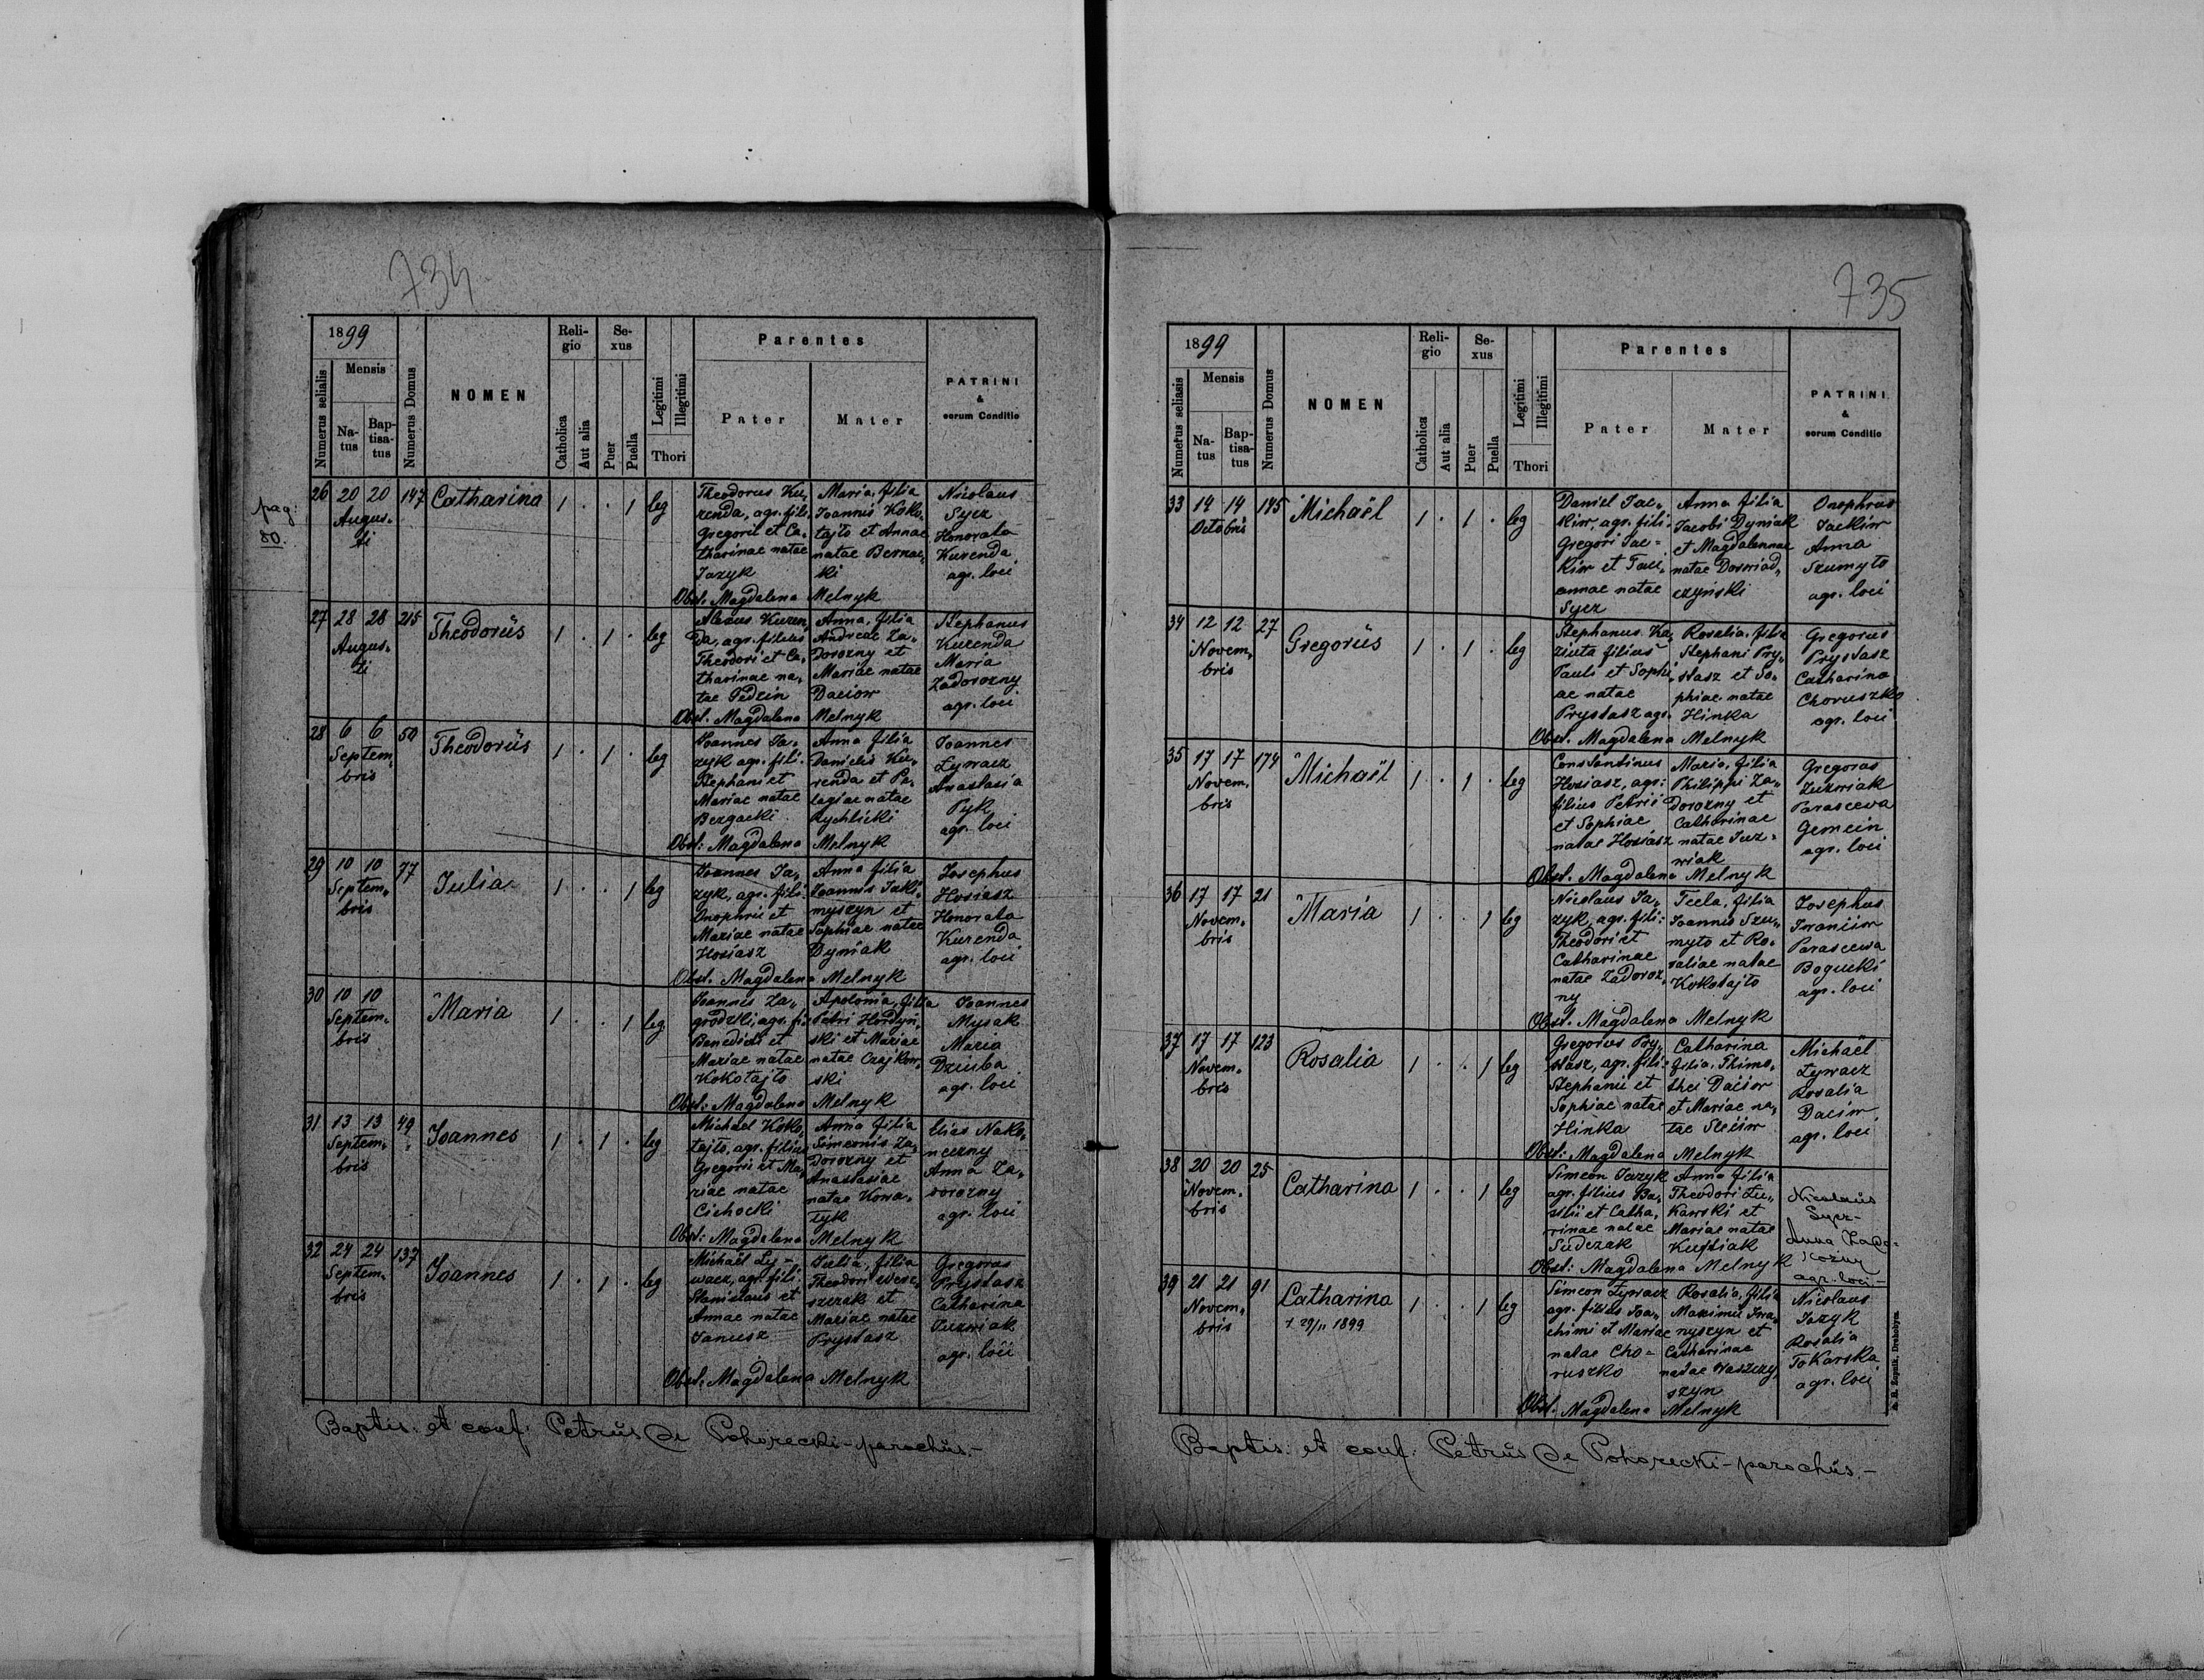 734
pag: 80.
1899
Numerus serialis
Mensis
Natus
Baptisatus
Numerus Domus
NOMEN
Religio
Catholica
Aut alia
Sexus
Puer
Puella
Legitimi
Illegitimi
Thori
Parentes
Pater
Mater
PATRINI
&
eorum Conditio
26 20 20 147 Catharina 1 . . 1 leg
Augusti
Theodorus Ku-
renda, agr. fili:
Gregorii et Ca-
tharinae natae
Jazyk
Maria, filia
Joannis Koko-
tajło et Annae
natae Bernac-
ki
Nicolaus
Sycz
Honorata
Kurenda
agr. loci
Obst. Magdalena Melnyk
27 28 28 215 Theodorus 1 . 1 . leg
Augusti
Alexius Kuren-
da, agr. filius
Theodori et Ca-
tharinae na-
tae Fedcin
Anna, filia
Andreae Za-
dorozny et
Mariae natae
Daciow
Stephanus
Kurenda
Maria
Zadorozny
agr. loci
Obst. Magdalena Melnyk
28 6 6 50 Theodorus 1 . 1 . leg
Septembris
Joannes Ja-
zyk agr. fili:
Stephani et
Mariae natae
Bezgacki
Anna filia
Danielis Ku-
renda et Pe-
lagiae natae
Rychlicki
Joannes
Zywacz
Anastasia
Pyk
agr. loci
Obst: Magdalena Melnyk
29 10 10 77 Julia 1 . . 1 leg
Septembris
Joannes Ja-
zyk, agr. fili:
Onophrii et
Mariae natae
Hosiasz
Anna filia
Joannis Jaki-
myszyn et
Sophiae natae
Dyniak
Josephus
Hosiasz
Honorata
Kurenda
agr. loci
Obst. Magdalena Melnyk
30 10 10 Maria 1 . . 1 leg
Septembris
Joannes Za-
grodzki, agr. fi:
Benedicti et
Mariae natae
Kokotajło
Apolonia, filia
Petri Hordyń-
ski et Mariae
natae Czajkow-
ski
Joannes
Mysak
Maria
Dziuba
agr. loci
Obst: Magdalena Melnyk
31 13 13 49 Joannes 1 . 1 . leg
Septembris
Michael Koko-
tajło, agr. filius
Gregorii et Ma-
riae natae
Cichocki
Anna filia
Simeonis Za-
dorozny et
Anastasiae
natae Kowa-
łyk
Elias Nako-
neczny
Anna Za-
dorozny
agr. loci
Obst: Magdalena Melnyk
32 24 24 137 Joannes 1 . 1 . leg
Septembris
Michaël Zy-
wacz, agr. fili:
Stanislaus et
Annae natae
Janusz
Julia, filia
Theodori
et
Mariae natae
Prystasz
Gregoras
Prystasz
Catharina
Juzwiak
agr. loci
Obst: Magdalena Melnyk
Baptis: et conf: Petrus de Pohorecki-parochus.-
735
1899
Numerus serialis
Mensis
Natus
Baptisatus
Numerus Domus
NOMEN
Religio
Catholica
Aut alia
Sexus
Puer
Puella
Legitimi
Illegitimi
Thori
Parentes
Pater
Mater
PATRINI
&
eorum Conditio
33 14 14 145 Michaël 1 . 1 . leg
Octobris
Daniel Jac-
kiw, agr. fili:
Gregori Jac-
kiw et
natae
Sycz
Anna filia
Jacobi Dyniak
et Magdalennae
natae Dorwiad-
czyński
Onophrus
Jackiw
Anna
Szumyło
agr. loci
34 12 12 27 Gregorius 1 . 1 . leg
Novembris
Stephanus Ka-
ziuta filius
Pauli et Sophi-
ae natae
Prystasz agr.
Rosalia, filia
Stephani Pry-
stasz et So-
phiae natae
Hinka
Gregorius
Prystasz
Catharina
Choruszko
agr. loci
Obst. Magdalena Melnyk
35 17 17 174 Michaël 1 . 1 . leg
Novembris
Constantinus
Hosiasz, agr:
filius Petri
et Sophiae
natae Hosiasz
Maria, filia
Philippi Za-
dorozny et
Catharinae
natae Juz-
wiak
Gregoras
Juzwiak
Parascewa
Gemcin
agr. loci
Obst. Magdalena Melnyk
36 17 17 21 Maria 1 . . 1 leg
Novembris
Nicolaus Ja-
zyk, agr. fili:
Theodori et
Catharinae
natae Zadoroz-
ny
Tecla, filia
Joannis Szu-
myło et Ro-
saliae natae
Kokotajło
Josephus
Iwanciw
Parascewa
Bogucki
agr. loci
Obst. Magdalena Melnyk
37 17 17 123 Rosalia 1 . . 1 leg
Novembris
Gregorus Pry-
stasz, agr. fili:
Stephani et
Sophiae natae
Hinka
Catharina
filia, Thimo-
thei Daciow
et Mariae na-
tae Steciw
Michaël
Zywacz
Rosalia
Daciw
agr. loci
Obst: Magdalena Melnyk
38 20 20 25 Catharina 1 . . 1 leg
Novembris
Simeon Jazyk
agr. filius Ba-
silii et Catha-
rinae natae
Sudczak
Anna filia
Theodori Łu-
kawski et
Mariae natae
Nicolaus
Sycz-
Anna Zado-
rozny
agr. loci-
Obst: Magdalena Melnyk
39 21 21 91 Catharina 1 . . 1 leg
Novembris
† 29/11 1899
Simeon Zywacz
agr. filius Joa-
chimi et Mariae
natae Cho-
ruszko
Rosalia, filia
Maximii Iwa-
nyszyn et
Catharinae
natae Waszczy-
szyn
Nicolaus
Jazyk
Rosalia
Tokarska
agr. loci
Obst. Magdalena Melnyk
Baptis: et conf: Petrus de Pohorecki-parochus.-
Żupnik, Drohobycz